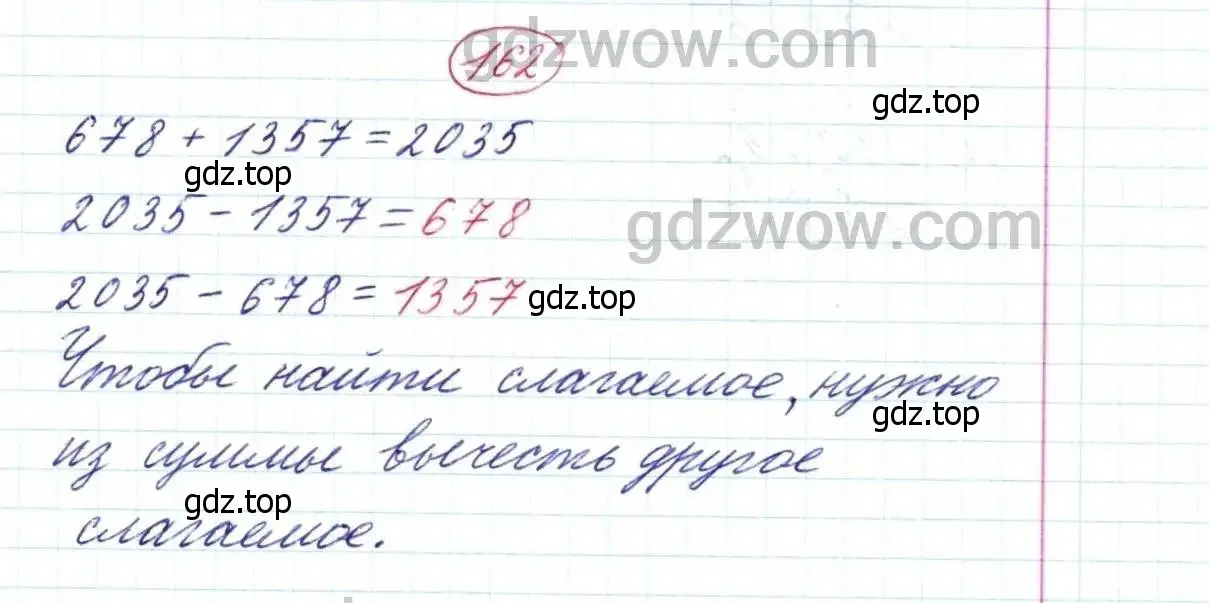 162
gdzwow.com
gdz.top
678 + 1357 = 2035
gdz.top
2035 - 1357 = 678
gdzwow.com
2035 - 678 = 1357
gdz.top
Чтобы найти слагаемое, нужно
gdz.top
из суммы вычесть другое
gdz.top
слагаемое.